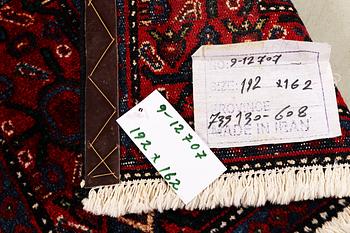 9-12707
SIZE: 192 x162
PROVINCE
739130-608
MADE IN IRAN
9-12707
192 x 162